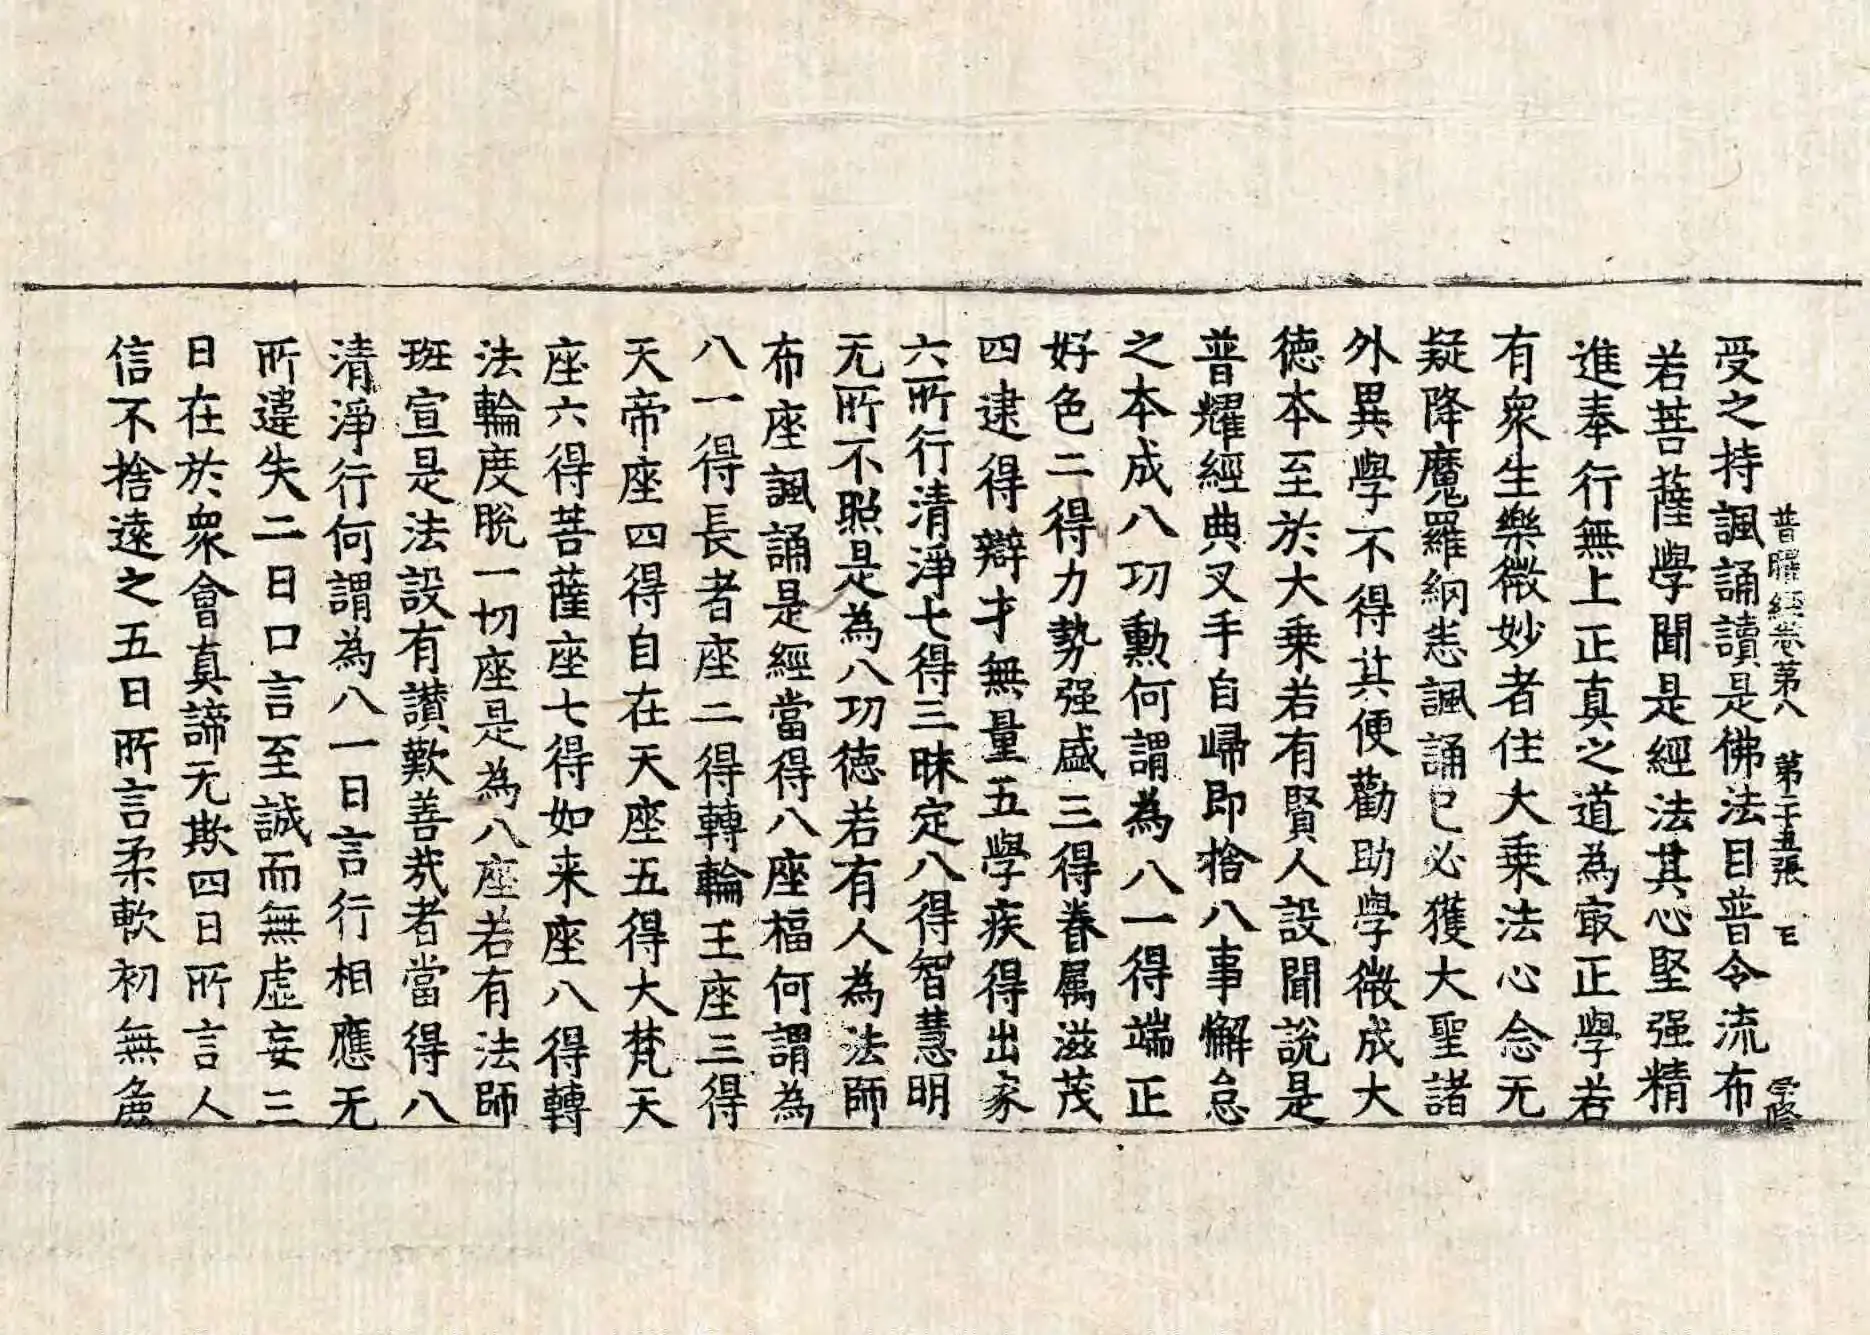 普曜經卷第八 第二十五張
受之持諷誦讀是佛法目普令流布
若菩薩學聞是經法其心堅强精
進奉行無上正真之道為㝡正學若
有衆生樂微妙者住大乗法心念无
疑降魔羅網恚諷誦已必獲大聖諸
外異學不得其便勸助學微成大
徳本至於大乗若有賢人設聞說是
普耀經典叉手自歸即捨八事懈怠
之本成八功勳何謂為八一得端正
好色二得力勢强盛三得眷属滋茂
四逮得辯才無量五學疾得出家
六所行清淨七得三昧定八得智慧明
无所不照是為八功徳若有人為法師
布座諷誦是經當得八座福何謂為
八一得長者座二得轉輪王座三得
天帝座四得自在天座五得大梵天
座六得菩薩座七得如来座八得轉
法輪度脫一切座是為八座若有法師
班宣是法設有讃歎善㢤者當得八
清淨行何謂為八一曰言行相應无
所違失二曰口言至誠而無虚妄三
曰在於衆會真諦无欺四曰所言人
信不捨遠之五曰所言柔軟初無麁